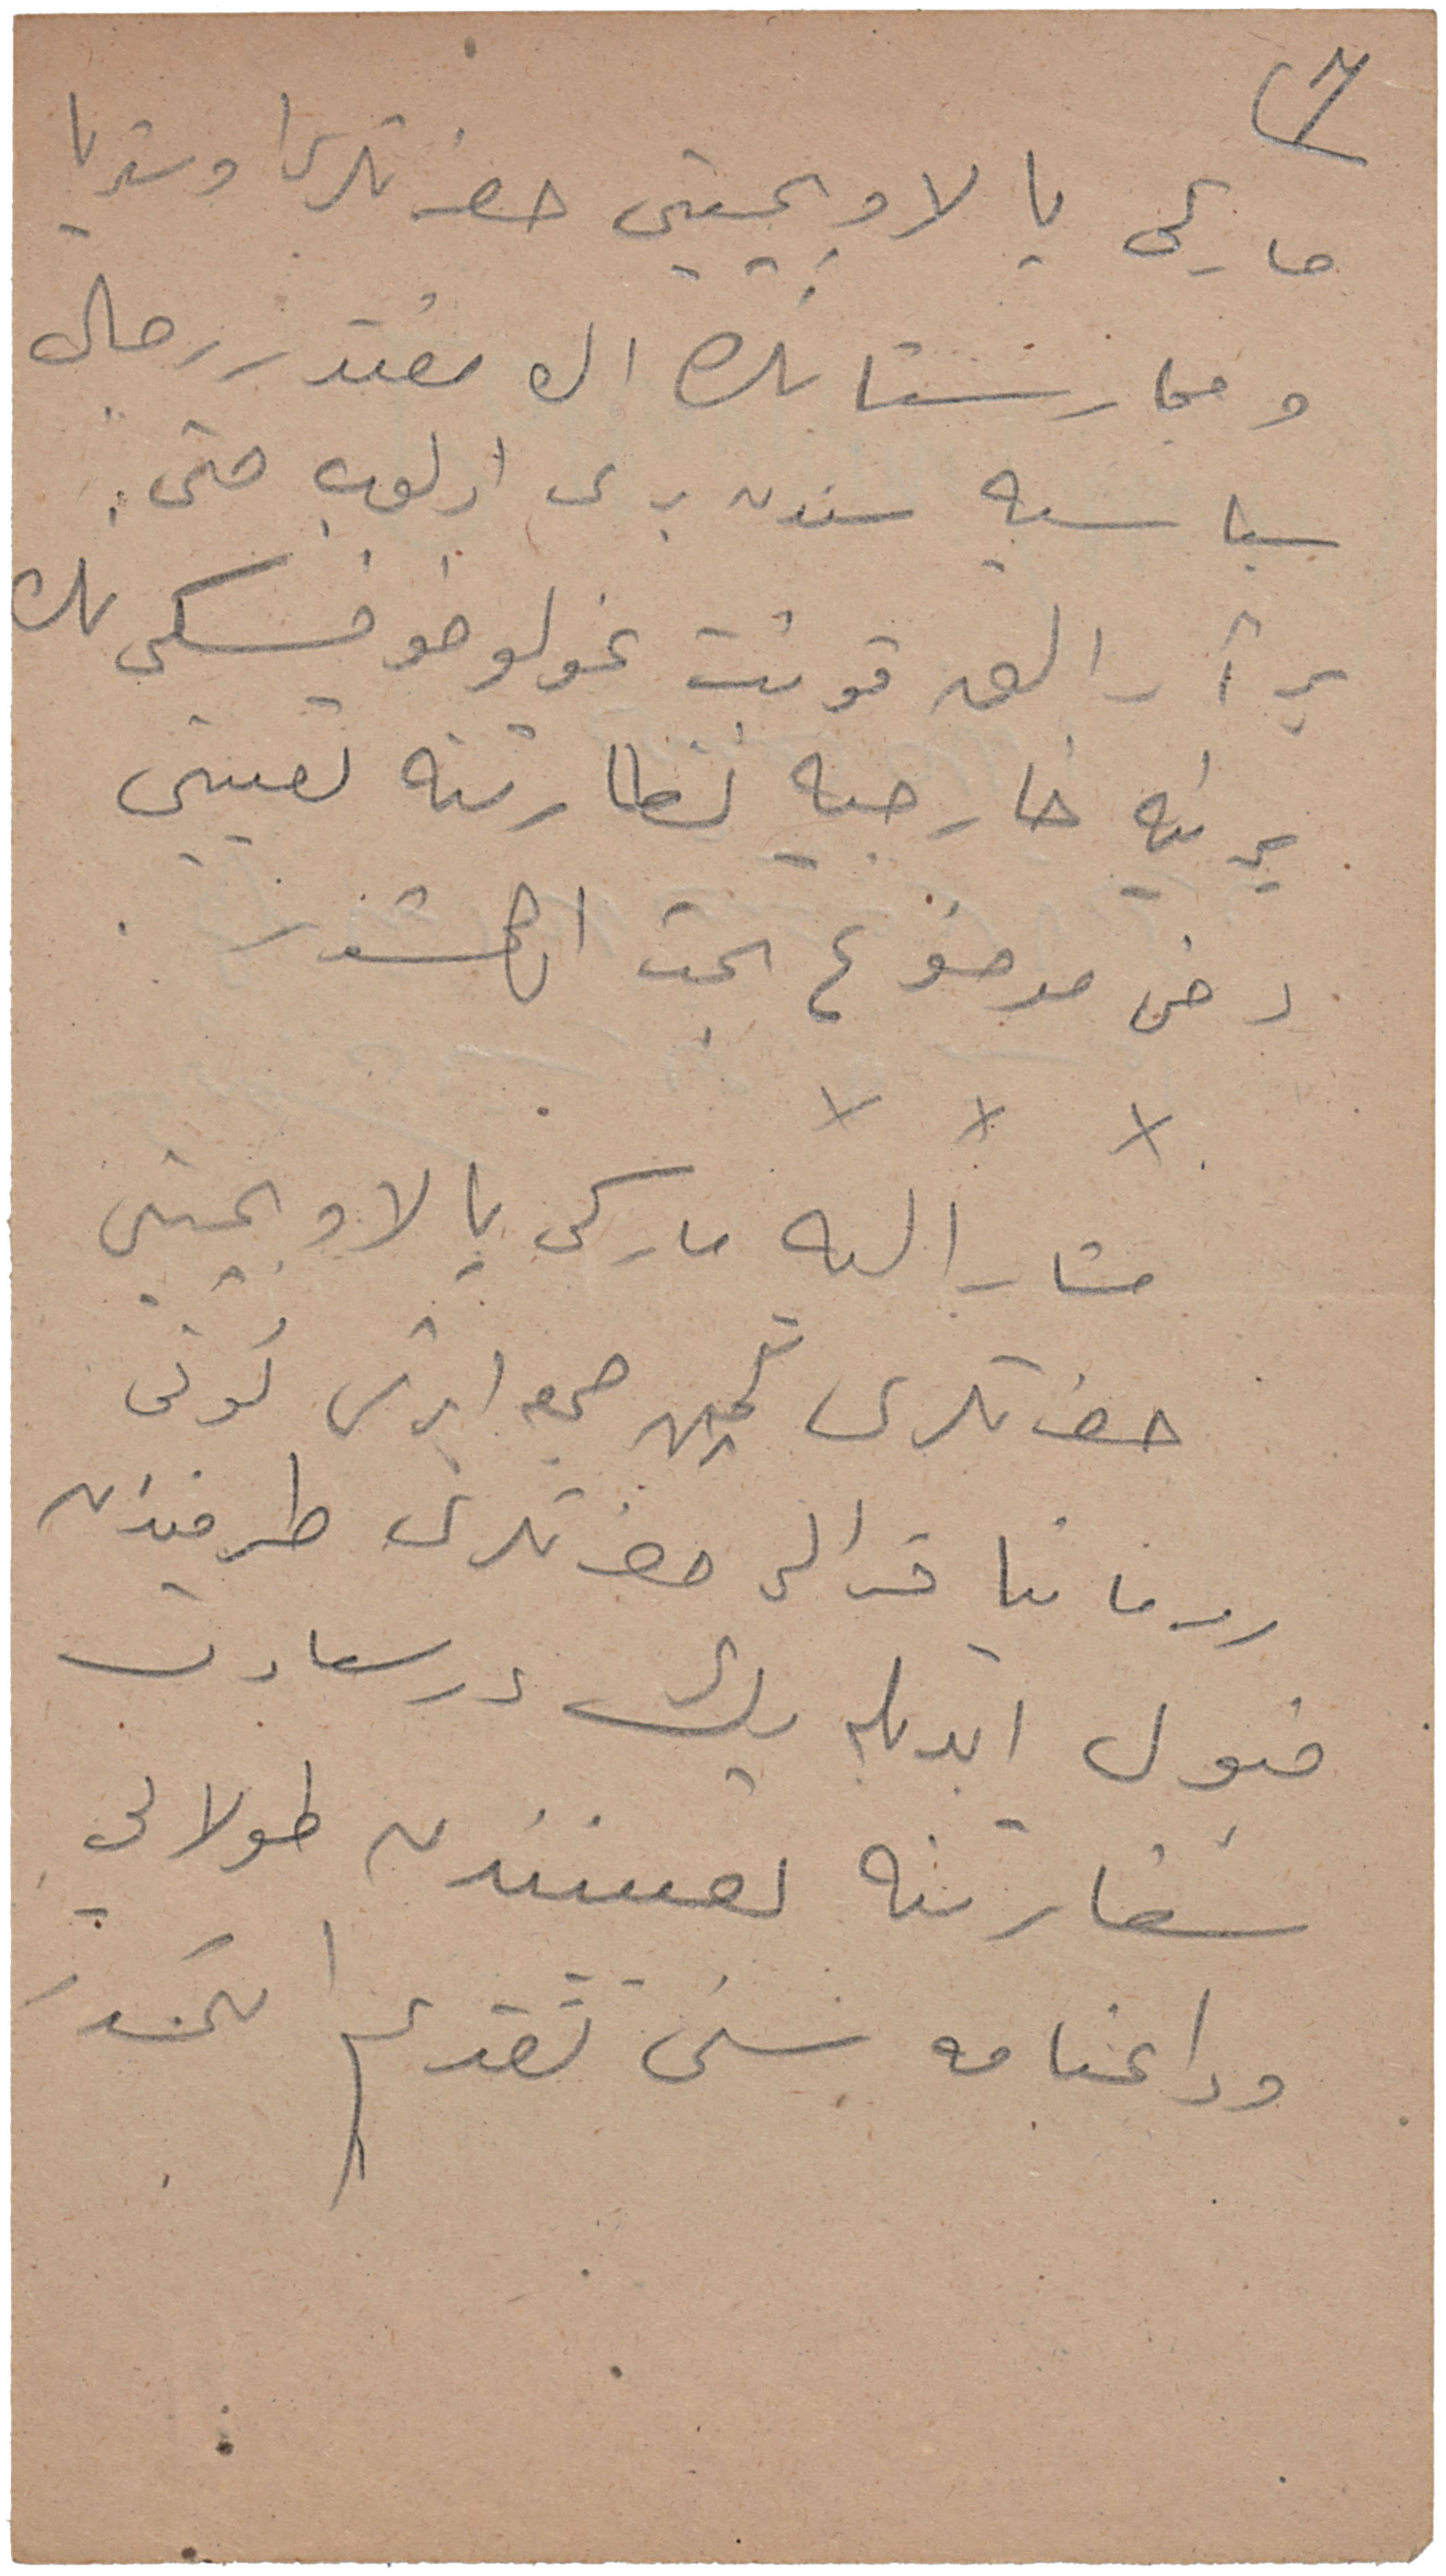 مارکی پالاویچینی حضرتلری اوستریا
و مجارستانك اك مقتدر رجال
سیاسیه سندن بری اولوب حتی
بر آرالق قونت غولوخوفسکی نك
یرینه خارجیه نظارتنه تعیینی
دخی موضوع بحث اولمشدر .
× × ×
مشار الیه مارکی پالاویچینی
حضرتلری كچن جمعه ایرتسی کونی
رومانیا قرالی حضرتلری طرفندن
قبول ایدیله رك درسعادت
سفارتنه تعییندن طولایی
وداعنامه سنی تقدیم ایتمشدر